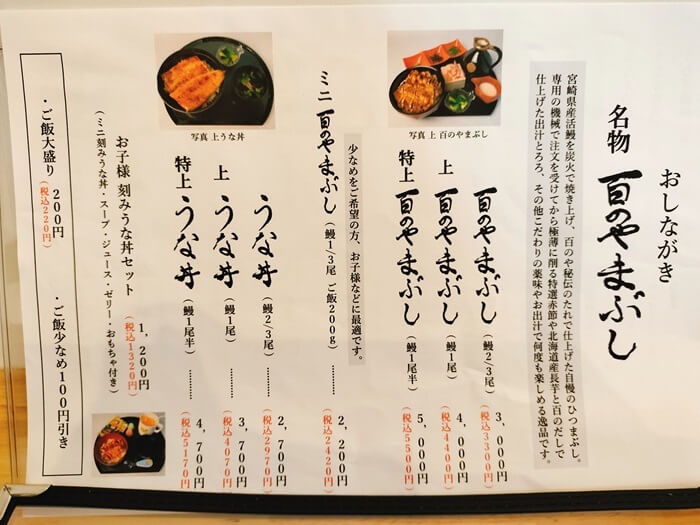 おしながき
名物 百のやまぶし
宮崎県産活鰻を炭火で焼き上げ、百のや秘伝のたれで仕上げた自慢のひつまぶし。
専用の機械で注文を受けてから極薄に削る特選赤節や北海道産長芋と百のだしで
仕上げた出汁とろろ、その他こだわりの薬味やお出汁で何度も楽しめる逸品です。
写真 上 百のやまぶし
百のやまぶし(鰻2/3尾) 3,000円
(税込3300円)
上 百のやまぶし(鰻1尾) 4,000円
(税込4400円)
特上 百のやまぶし(鰻1尾半) 5,000円
(税込5500円)
少なめをご希望の方、お子様などに最適です。
ミニ 百のやまぶし(鰻1/3尾 ご飯200g)………… 2,200円
(税込2420円)
写真 上うな丼
うな丼(鰻2/3尾)………… 2,700円
(税込2970円)
上 うな丼(鰻1尾)………… 3,700円
(税込4070円)
特上 うな丼(鰻1尾半)………… 4,700円
(税込5170円)
お子様 刻みうな丼セット 1,200円
(税込1320円)
(ミニ刻みうな丼・スープ・ジュース・ゼリー・おもちゃ付き)
・ご飯大盛り 200円
(税込220円)
・ご飯少なめ100円引き